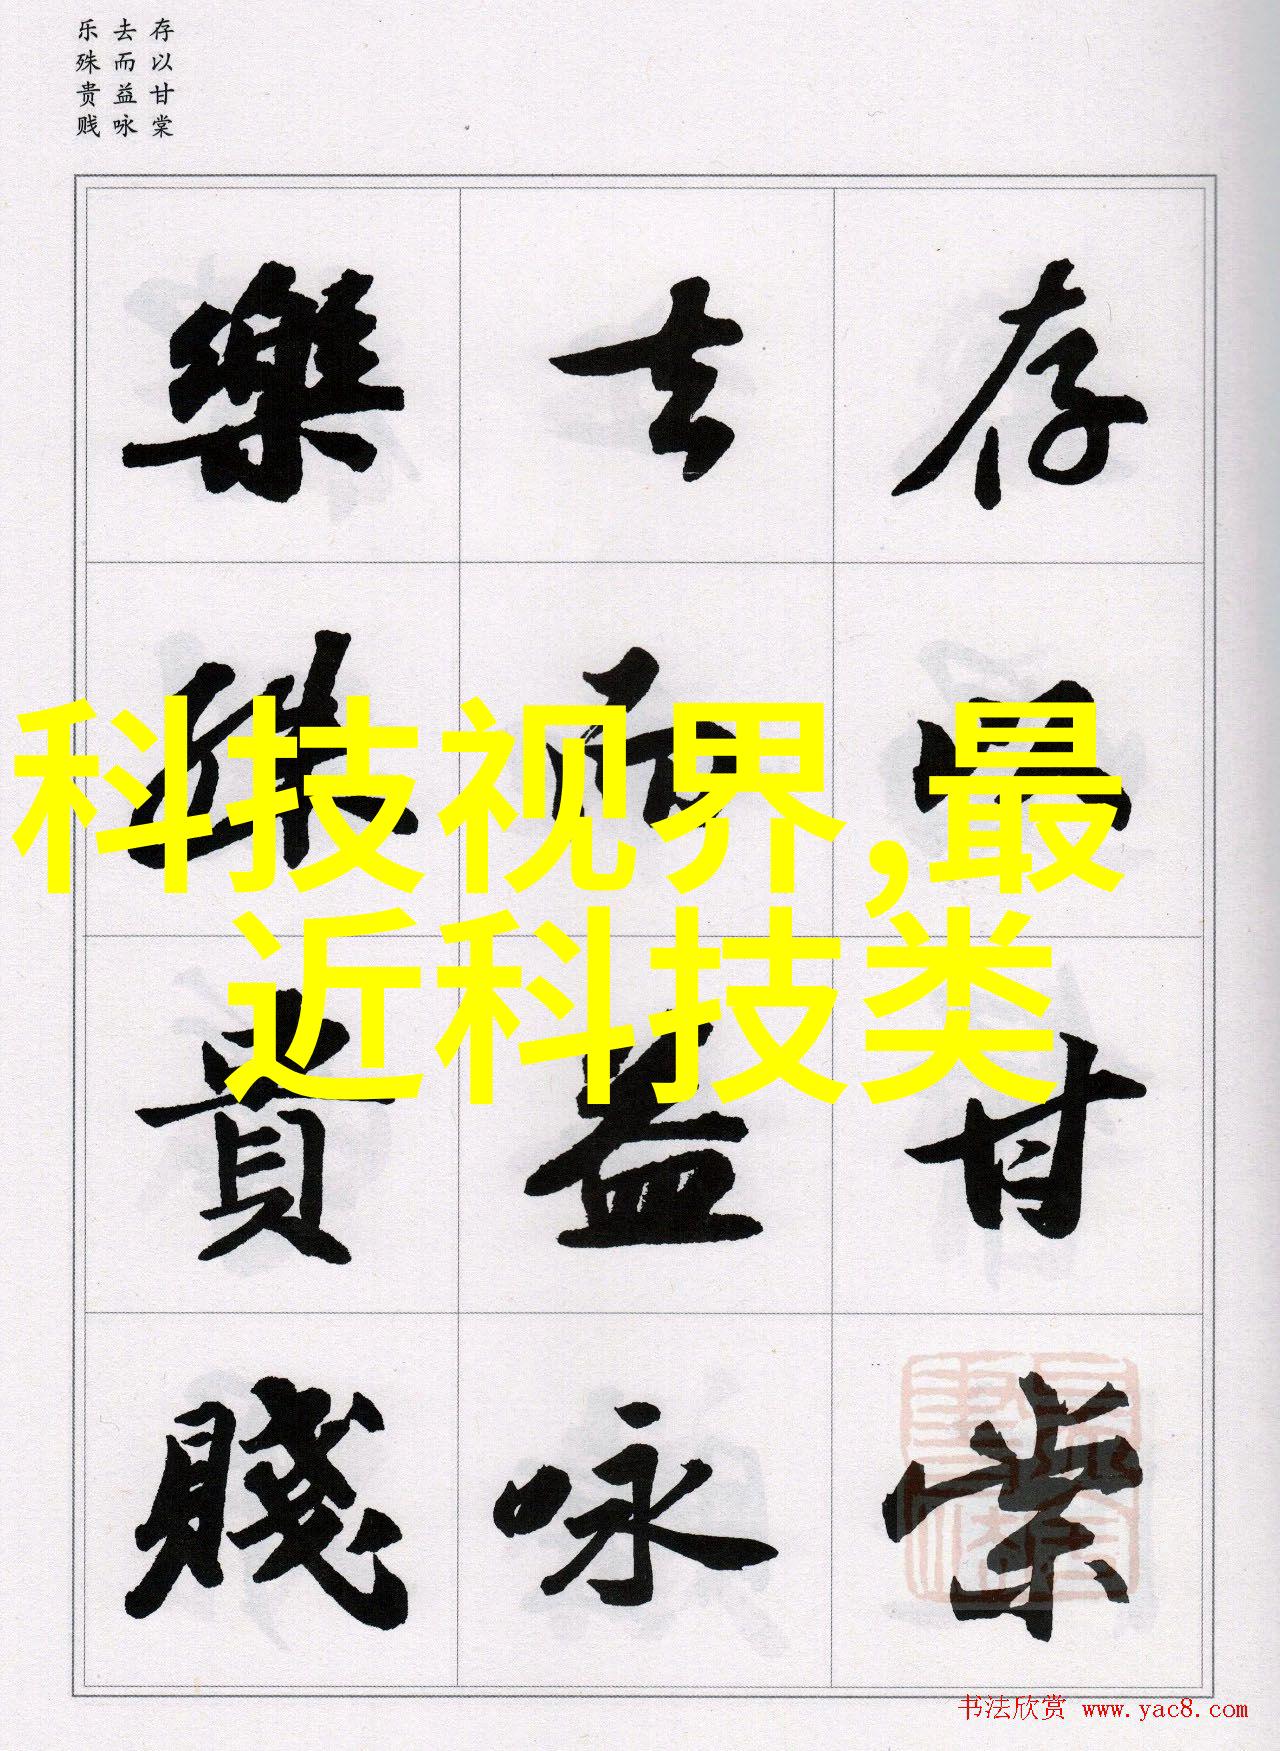 存以甘棠
去而益咏
乐殊贵贱
存以甘棠
去而益咏
樂殊貴賤
科技视界,最
近科技类
书法欣赏 www.yac8.com